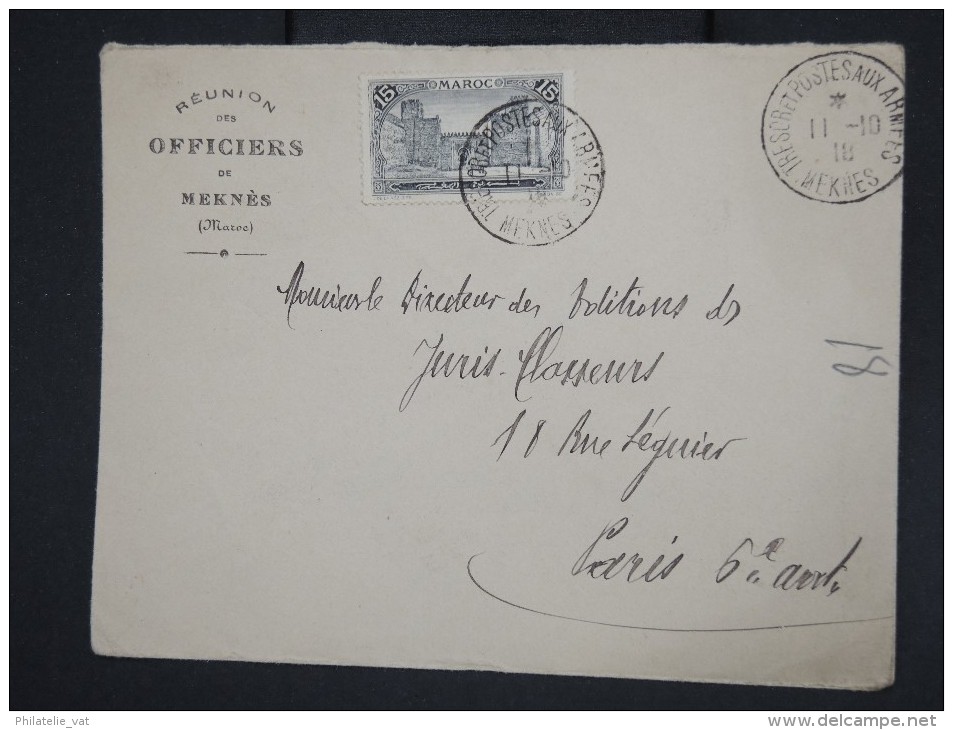 RÉUNION
DES
OFFICIERS
DE
MEKNÈS
(Maroc)
15 MAROC 15
TRESOR ET POSTES AUX ARMEES
11 -10
18
MEKNES
TRESOR ET POSTES AUX ARMEES
*
11 -10
18
MEKNES
Monsieur le Directeur des Editions des
Juris-Classeurs
18 Rue Séguier
Paris 6e arrt.
81
Philatelie_vat
www.delcampe.net